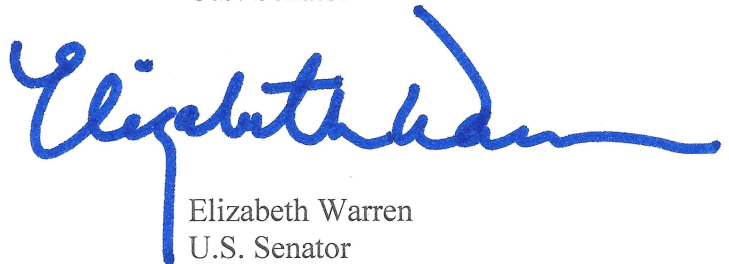 U.S. Senator
Elizabeth Warren
Elizabeth Warren
U.S. Senator